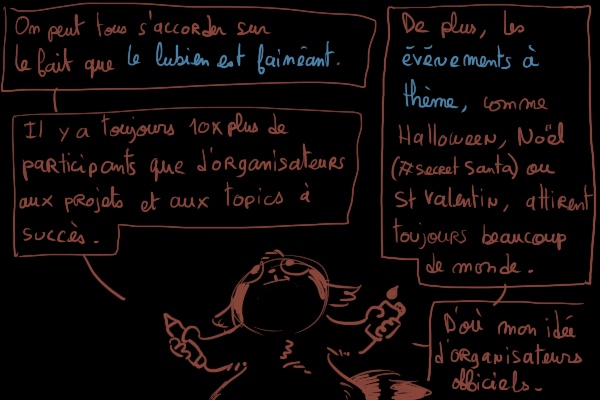 On peut tous s'accorder sur
le fait que le lubien est fainéant.
Il y a toujours 10x plus de
participants que d'organisateurs
aux projets et aux topics à
succès.
De plus, les
évènements à
thème, comme
Halloween, Noël
(#secret santa) ou
St Valentin, attirent
toujours beaucoup
de monde.
D'où mon idée
d'organisateurs
officiels.